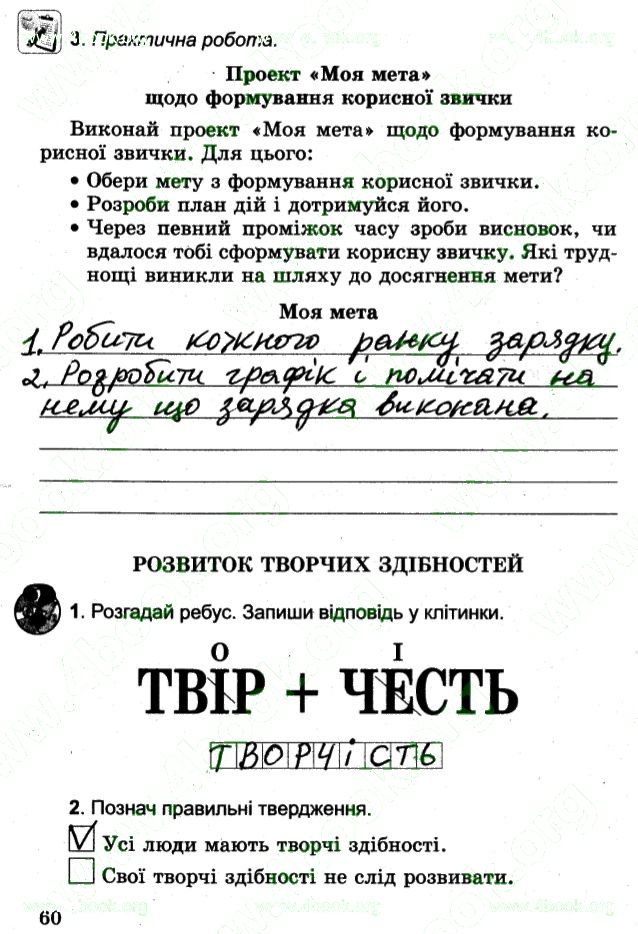 3. Практична робота.
Проект «Моя мета»
щодо формування корисної звички
Виконай проект «Моя мета» щодо формування ко-
рисної звички. Для цього:
• Обери мету з формування корисної звички.
• Розроби план дій і дотримуйся його.
• Через певний проміжок часу зроби висновок, чи
вдалося тобі сформувати корисну звичку. Які труд-
нощі виникли на шляху до досягнення мети?
Моя мета
1. Робити кожного ранку зарядку.
2. Розробити графік і помічати на
нему що зарядка виконана.
РОЗВИТОК ТВОРЧИХ ЗДІБНОСТЕЙ
1. Розгадай ребус. Запиши відповідь у клітинки.
О І
ТВІР + ЧЕСТЬ
ТВОРЧІСТЬ
2. Познач правильні твердження.
Усі люди мають творчі здібності.
Свої творчі здібності не слід розвивати.
60
www.4book.org